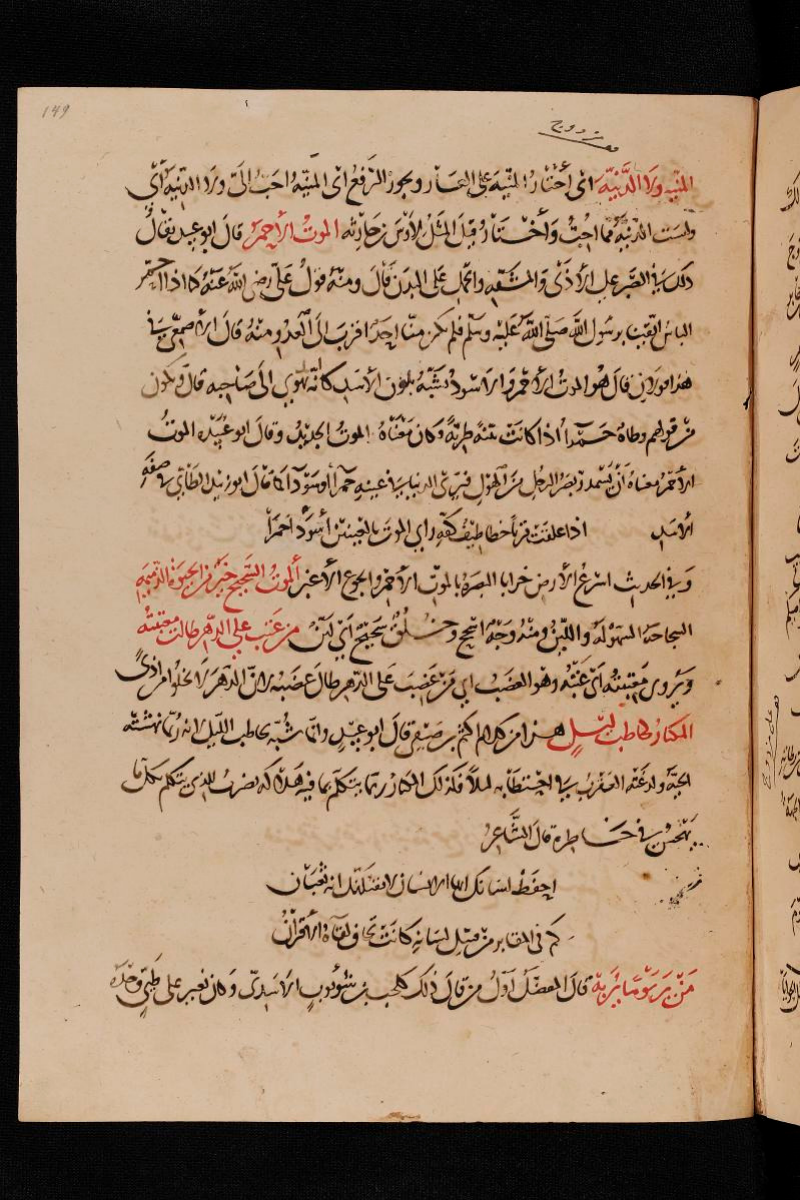 149
مزدوج
المنيه ولا الدنيّه اى أختار المنية على العار ويجوز الرفع اى المنيّه احبّ الىّ ولا الدنيّه اى
وليست الدنيّة مما احبّ وأختار وقيل المثل لاوس بن حارثه الموت الأحمر قال ابو عبيد يقال
ذلك في الصبر على الأذى والمشقه والحمل على البدن قال ومنه قول علىّ رضى الله عنه كنا اذا احمرّ
الباس اتقينا برسول الله صلى الله عليه وسلم فلم يكن منا احد اقرب الى العدو منه قال الأصمعى في
هذا قولان قال هو الموت الأحمر والاسود يشبّه بلون الأسد كانه يهوى الى صاحبه قال ويكون
من قولهم وطاة حمرآ اذا كانت طريّة وكان معناه الموت الجديد وقال ابو عبيده الموت
الأحمر معناه أن يسمدر بصر الرجل من الهول فيرى الدنيا في عينه حمرآ او سودآ كما قال ابو زبيد الطائى في صفة
الأسد اذا علقت قرنا خطاطيف كفّه راى الموت بالعينين أسود احمرا
وفي الحديث اسرع الأرض خرابا البصرة بالموت الأحمر والجوع الأغبر الموت السجيح خير من الحيوة الذميمه
السجاحة السهولة واللين ومنه وجه اسجح وخلق سجيح اى ليّن من عتب على الدهر طالت معتبته
ويروى معتبته اى عتبه وهو الغضب اى من غضب على الدهر طال غضبه لان الدهر لا يخلو من اذى
المكثار كحاطب ليل هذا من كلام اكثم بن صيفى قال ابو عبيد وانما شبّه بحاطب الليل لانه ربما نهشته
الحيّة ولدغته العقرب في احتطابه ليلاً فكذلك المكثار ربما يتكلم بما فيه هلاكه يضرب للذى يتكلم بكل ما
يهجس في خاطره قال الشاعر
احفظ لسانك ايها الانسان لا يقتلنك انه ثعبان
كم في المقابر من قتيل لسانه كانت تخاف لقآءه الأقران
من يرَ يوما يُرَ به قال المفضل اوّل من قال ذلك كلحب بن شؤبوب الأسدى وكان يغير على طىّ وحده